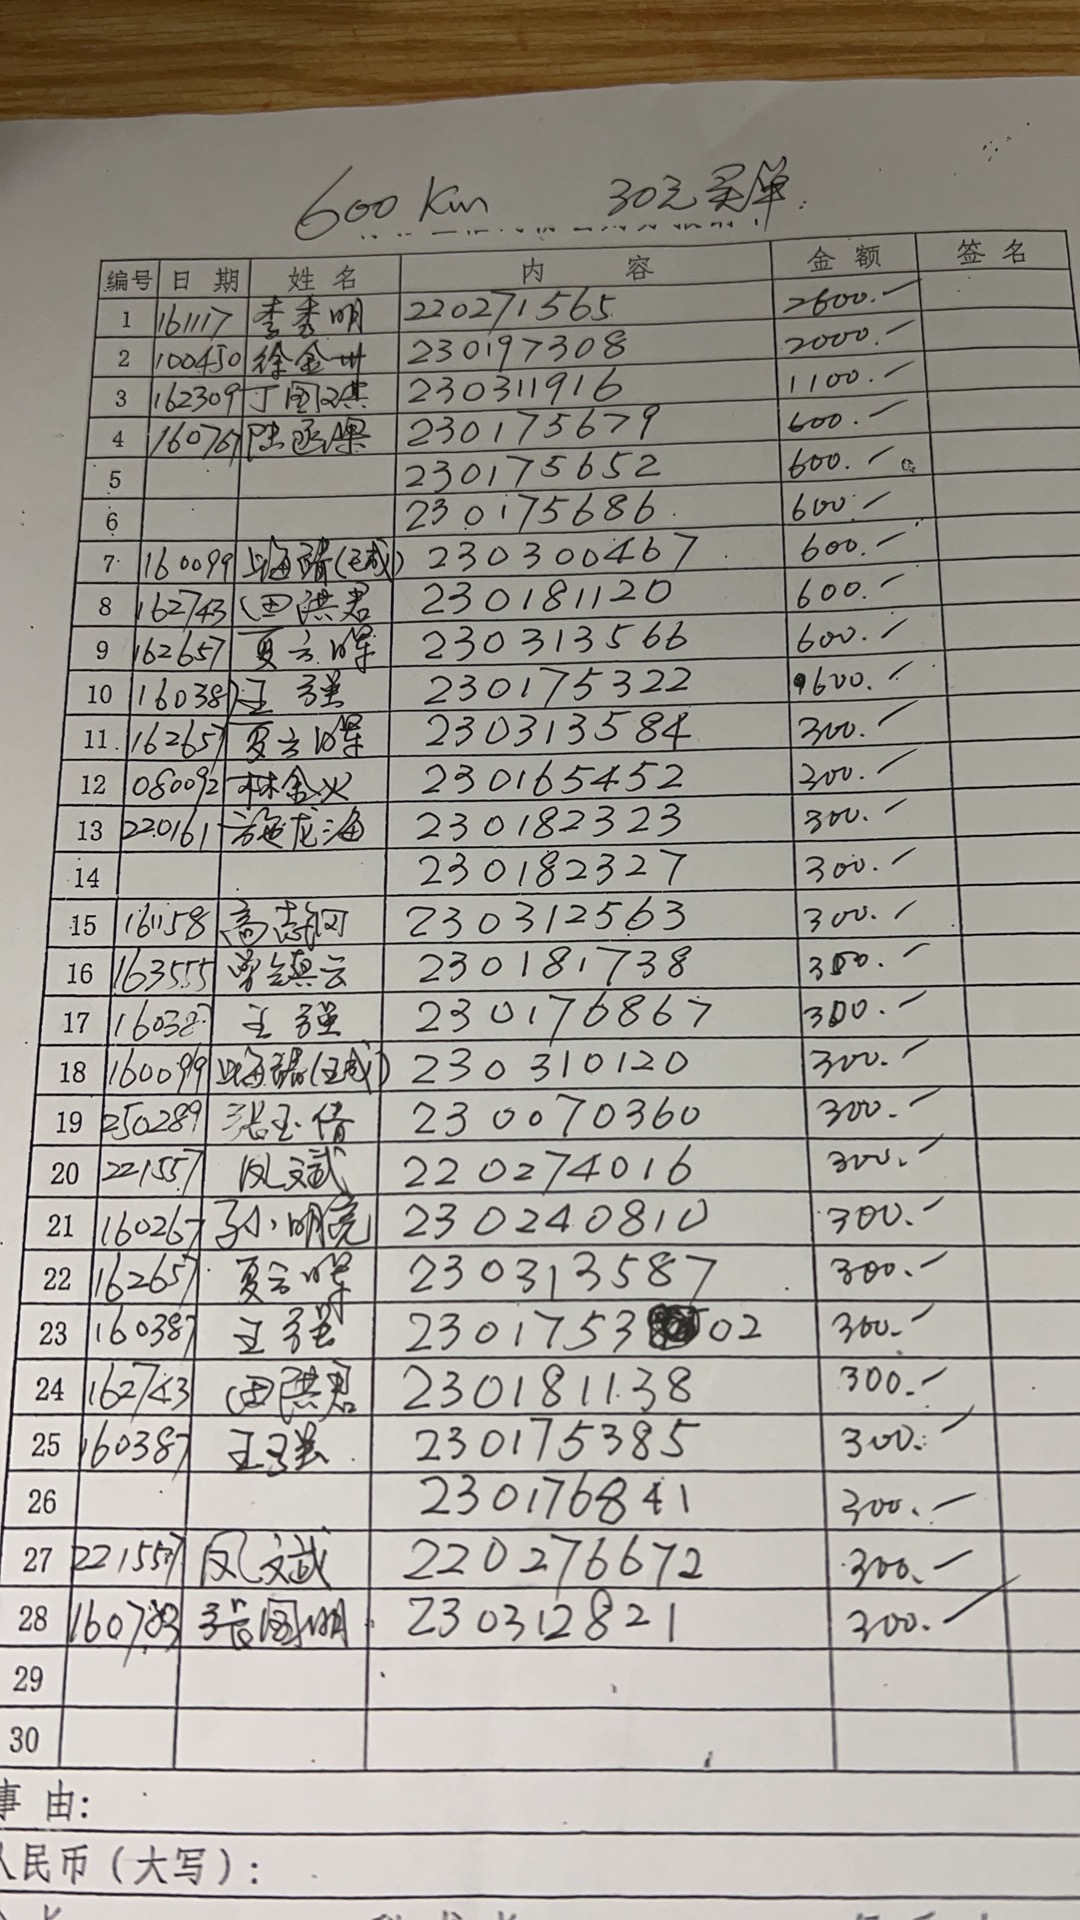 600 Km 30元买单.
编号 日 期 姓 名 内 容 金 额 签 名
1 161117 李秀明 220271565 2600.-
2 100450 徐金 230197308 2000.-
3 162309 丁国 230311916 1100.-
4 160767 230175679 600.-
5 230175652 600.-
6 230175686 600.-
7 160099 上海 230300467 600.-
8 162743 田洪君 230181120 600.-
9 162657 夏云 230313566 600.-
10 160387 王强 230175322 600.-
11 162657 夏云 230313584 300.-
12 080092 林金火 230165452 300.-
13 220161 施龙海 230182323 300.-
14 230182327 300.-
15 161158 高 230312563 300.-
16 163555 曾镇云 230181738 300.-
17 160387 王强 230176867 300.-
18 160099 上海 230310120 300.-
19 250289 张玉倩 230070360 300.-
20 221557 凤文斌 220274016 300.-
21 160267 孙小明 230240810 300.-
22 162657 夏云 230313587 300.-
23 160387 王强 2301753 02 300.-
24 162743 田洪君 230181138 300.-
25 160387 王强 230175385 300.-
26 230176841 300.-
27 221557 凤文斌 220276672 300.-
28 160783 张国明 230312821 300.-
29
30
事 由:
人民币(大写):